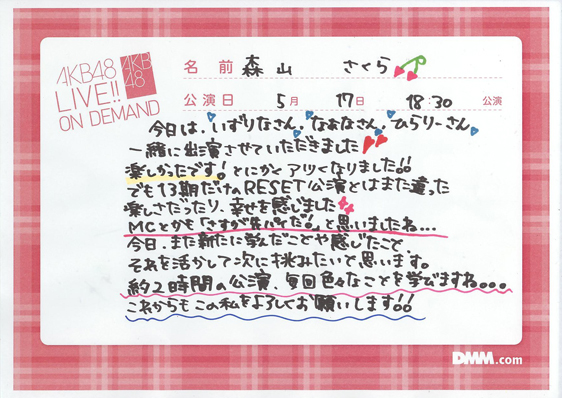 AKB48
LIVE!!
ON DEMAND
AKB
48
名前 森山 さくら
公演日 5月 17日 18:30 公演
今日は、いずりなさん、なぁなさん、ひらりーさん
一緒に出演させていただきました
楽しかったです!とにかくアツくなりました!!
でも13期だけのRESET公演とはまた違った
楽しさだったり、幸せを感じました
MCとかも「さすが先パイだ!」と思いましたね...
今日、また新たに学んだことや感じたこと、
それを活かして次に挑みたいと思います。
約2時間の公演、毎回色々なことを学びますね...
これからもこの私をよろしくお願いします!!
DMM.com